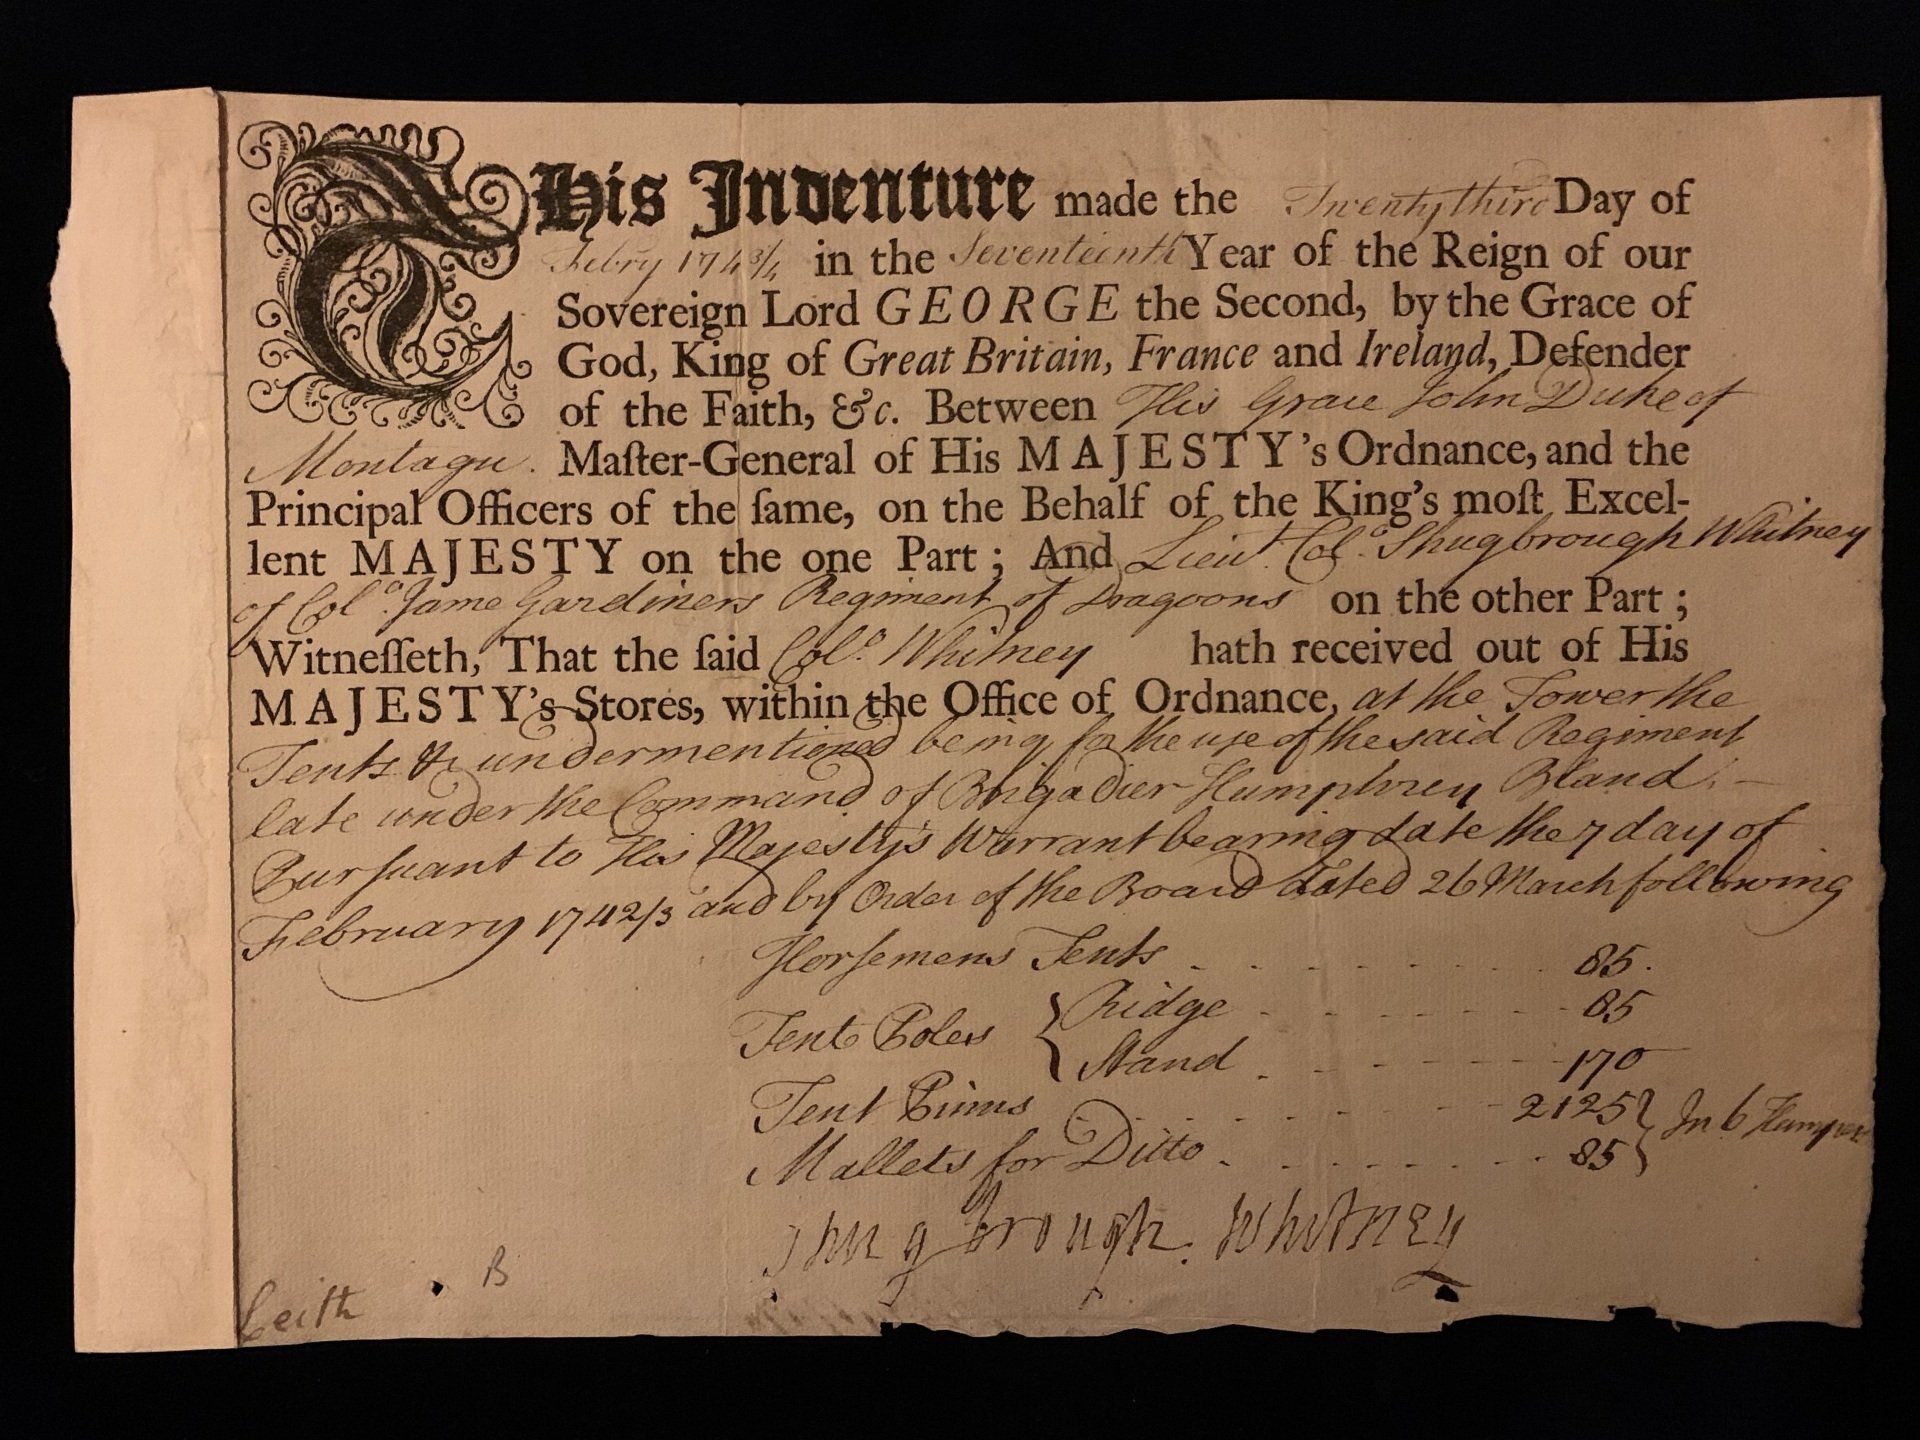 THis Indenture made the Twenty third Day of
Febry 1743/4 in the Seventeenth Year of the Reign of our
Sovereign Lord GEORGE the Second, by the Grace of
God, King of Great Britain, France and Ireland, Defender
of the Faith, &c. Between His Grace John Duke of
Montagu. Maſter-General of His MAJESTY's Ordnance, and the
Principal Officers of the ſame, on the Behalf of the King's moſt Excel-
lent MAJESTY on the one Part; And Lieut. Colo. Shugbrough Whitney
of Colo. Jame Gardiners Regiment of Dragoons on the other Part;
Witneſſeth, That the ſaid Colo. Whitney hath received out of His
MAJESTY's Stores, within the Office of Ordnance, at the Tower the
Tents &c undermentioned being for the use of the said Regiment
late under the Command of Brigadier Humphrey Bland. –
Purſuant to His Majesty's Warrant bearing date the 7 day of
February 1742/3 and by Order of the Board dated 26 March following
Horſemens Tents - - - - - - - 85.
Tent Poles { Ridge - - - - - - - 85
Stand - - - - - - 170
Tent Pinns - - - - - - - 2125 } In 6 Hamper
Mallets for Ditto - - - - - - - 85
Shugbrough. Whitney
B